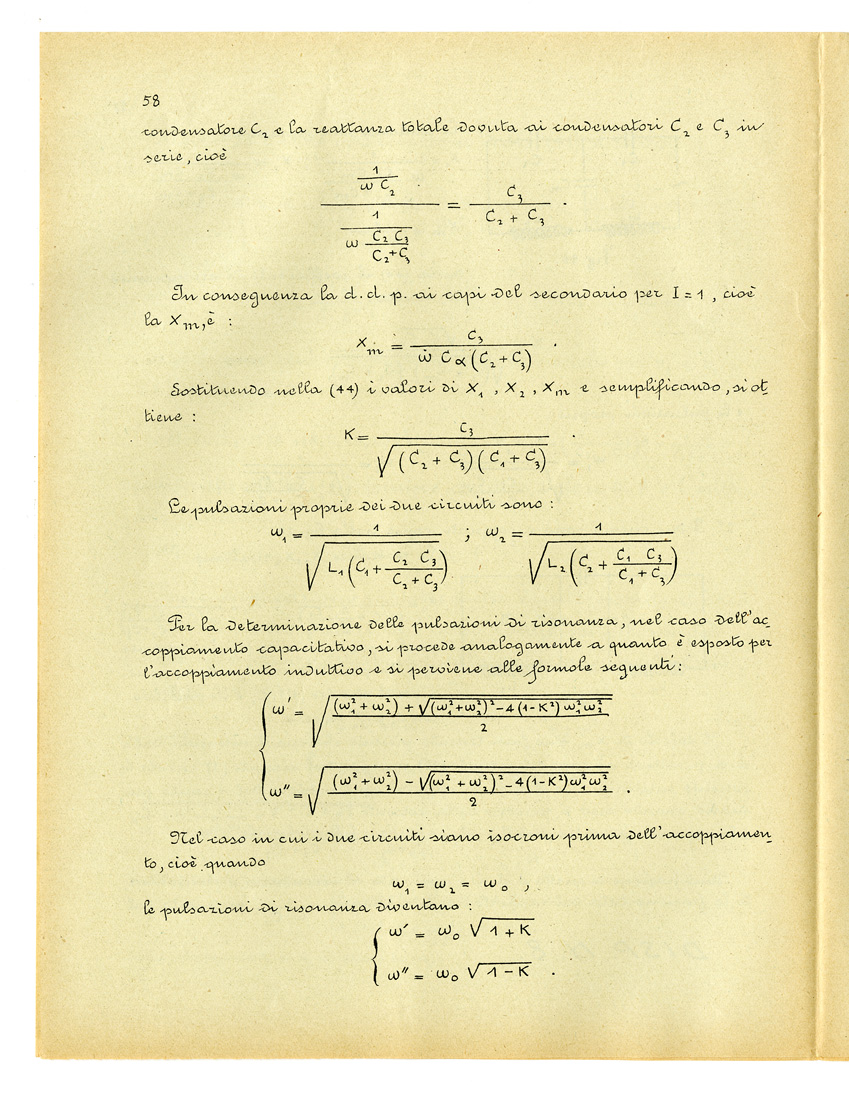 58
condensatore C₂ e la reattanza totale dovuta ai condensatori C₂ e C₃ in
serie, cioè
(1 / (ω C₂)) / (1 / (ω (C₂ C₃ / (C₂ + C₃)))) = C₃ / (C₂ + C₃) .
In conseguenza la d.d.p. ai capi del secondario per I = 1, cioè
la Xₘ, è :
Xₘ = C₃ / (ω C α (C₂ + C₃)) .
Sostituendo nella (44) i valori di X₁, X₂, Xₘ e semplificando, si ot
tiene :
K = C₃ / √((C₂ + C₃)(C₁ + C₃)) .
Le pulsazioni proprie dei due circuiti sono :
ω₁ = 1 / √(L₁ (C₁ + C₂ C₃ / (C₂ + C₃))) ; ω₂ = 1 / √(L₂ (C₂ + C₁ C₃ / (C₁ + C₃)))
Per la determinazione delle pulsazioni di risonanza, nel caso dell'ac
coppiamento capacitativo, si procede analogamente a quanto è esposto per
l'accoppiamento induttivo e si perviene alle formole seguenti :
ω' = √(((ω₁² + ω₂²) + √((ω₁² + ω₂²)² - 4 (1 - K²) ω₁² ω₂²)) / 2)
ω'' = √(((ω₁² + ω₂²) - √((ω₁² + ω₂²)² - 4 (1 - K²) ω₁² ω₂²)) / 2) .
Nel caso in cui i due circuiti siano isocroni prima dell'accoppiamen
to, cioè quando
ω₁ = ω₂ = ω₀ ,
le pulsazioni di risonanza diventano :
ω' = ω₀ √(1 + K)
ω'' = ω₀ √(1 - K) .